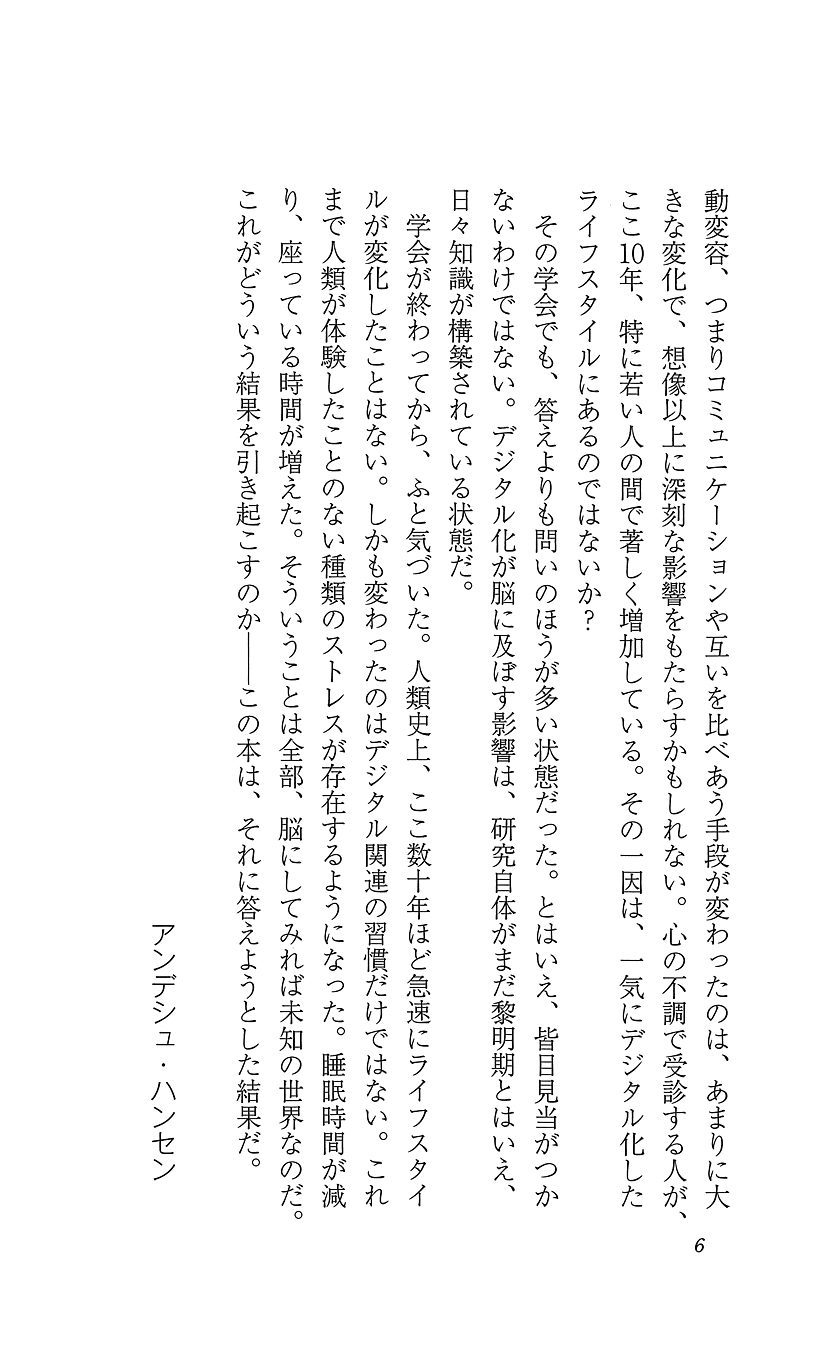 動変容、つまりコミュニケーションや互いを比べあう手段が変わったのは、あまりに大
きな変化で、想像以上に深刻な影響をもたらすかもしれない。心の不調で受診する人が、
ここ10年、特に若い人の間で著しく増加している。その一因は、一気にデジタル化した
ライフスタイルにあるのではないか?
　その学会でも、答えよりも問いのほうが多い状態だった。とはいえ、皆目見当がつか
ないわけではない。デジタル化が脳に及ぼす影響は、研究自体がまだ黎明期とはいえ、
日々知識が構築されている状態だ。
　学会が終わってから、ふと気づいた。人類史上、ここ数十年ほど急速にライフスタイ
ルが変化したことはない。しかも変わったのはデジタル関連の習慣だけではない。これ
まで人類が体験したことのない種類のストレスが存在するようになった。睡眠時間が減
り、座っている時間が増えた。そういうことは全部、脳にしてみれば未知の世界なのだ。
これがどういう結果を引き起こすのか――この本は、それに答えようとした結果だ。
アンデシュ・ハンセン
6